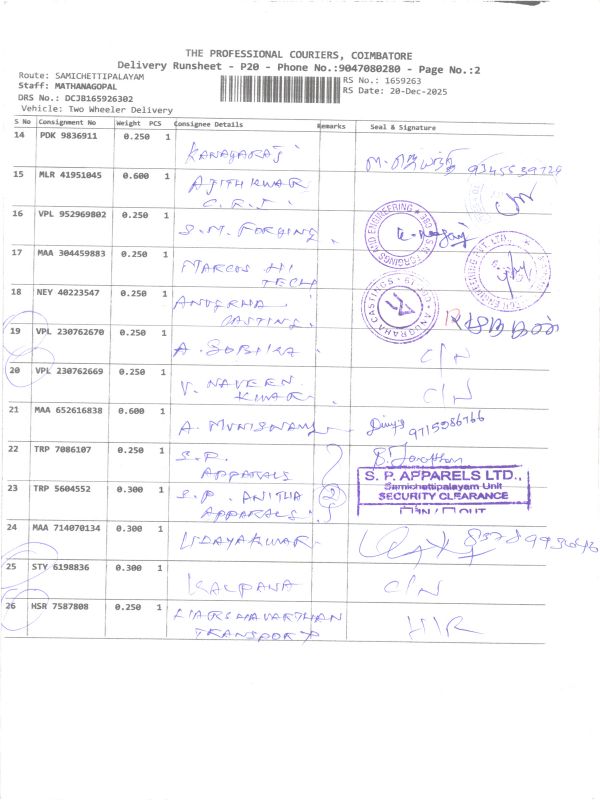 THE PROFESSIONAL COURIERS, COIMBATORE
Delivery Runsheet - P20 - Phone No.:9047080280 - Page No.:2
Route: SAMICHETTIPALAYAM
RS No.: 1659263
Staff: MATHANAGOPAL
RS Date: 20-Dec-2025
DRS No.: DCJB165926302
Vehicle: Two Wheeler Delivery
S No Consignment No Weight PCS Consignee Details Remarks Seal & Signature
14 PDK 9836911 0.250 1
KANAGARAJ
15 MLR 41951045 0.600 1
AJITHKUMAR
C.R.I.
16 VPL 952969802 0.250 1
S.M. FORGING.
17 MAA 304459883 0.250 1
MARCOS HI
TECH
18 NEY 40223547 0.250 1
ANUGRHA
CASTING.
ANUGRAHA CASTINGS
19 VPL 230762670 0.250 1
A. SOBIKA C/N
20 VPL 230762669 0.250 1
V. NAVEEN
KUMAR. C/N
21 MAA 652616838 0.600 1
A. MUNISWAMY 9715986766
22 TRP 7086107 0.250 1
S.P.
APPARALS
S. P. APPARELS LTD.,
Samichettipalayam Unit
SECURITY CLEARANCE
IN / OUT
23 TRP 5604552 0.300 1
S.P. ANITHA 2
APPARALS.
24 MAA 714070134 0.300 1
UDAYAKUMAR.
25 STY 6198836 0.300 1
KALPANA C/N
26 HSR 7587808 0.250 1
HARSHAVARTHAN
TRANSPORT H/R